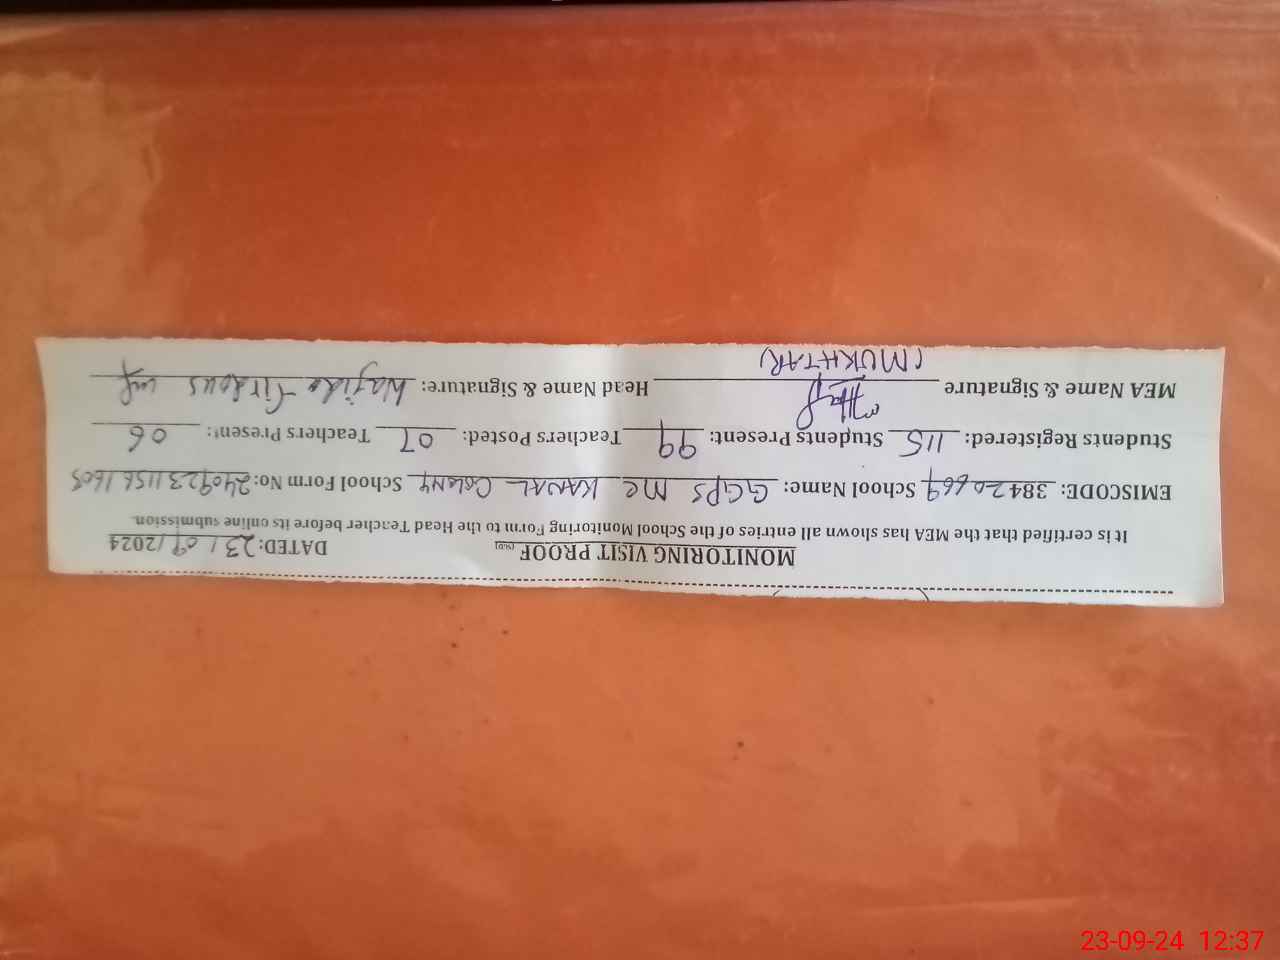 MONITORING VISIT PROOF DATED: 23/09/2024
It is certified that the MEA has shown all entries of the School Monitoring Form to the Head Teacher before its online submission.
EMISCODE: 38420669 School Name: GGPS MC KANAL COLONY School Form No: 24092311561605
Students Registered: 115 Students Present: 99 Teachers Posted: 07 Teachers Present: 06
MEA Name & Signature Head Name & Signature: Wajida Firdous
(MUKHTAR)
23-09-24 12:37